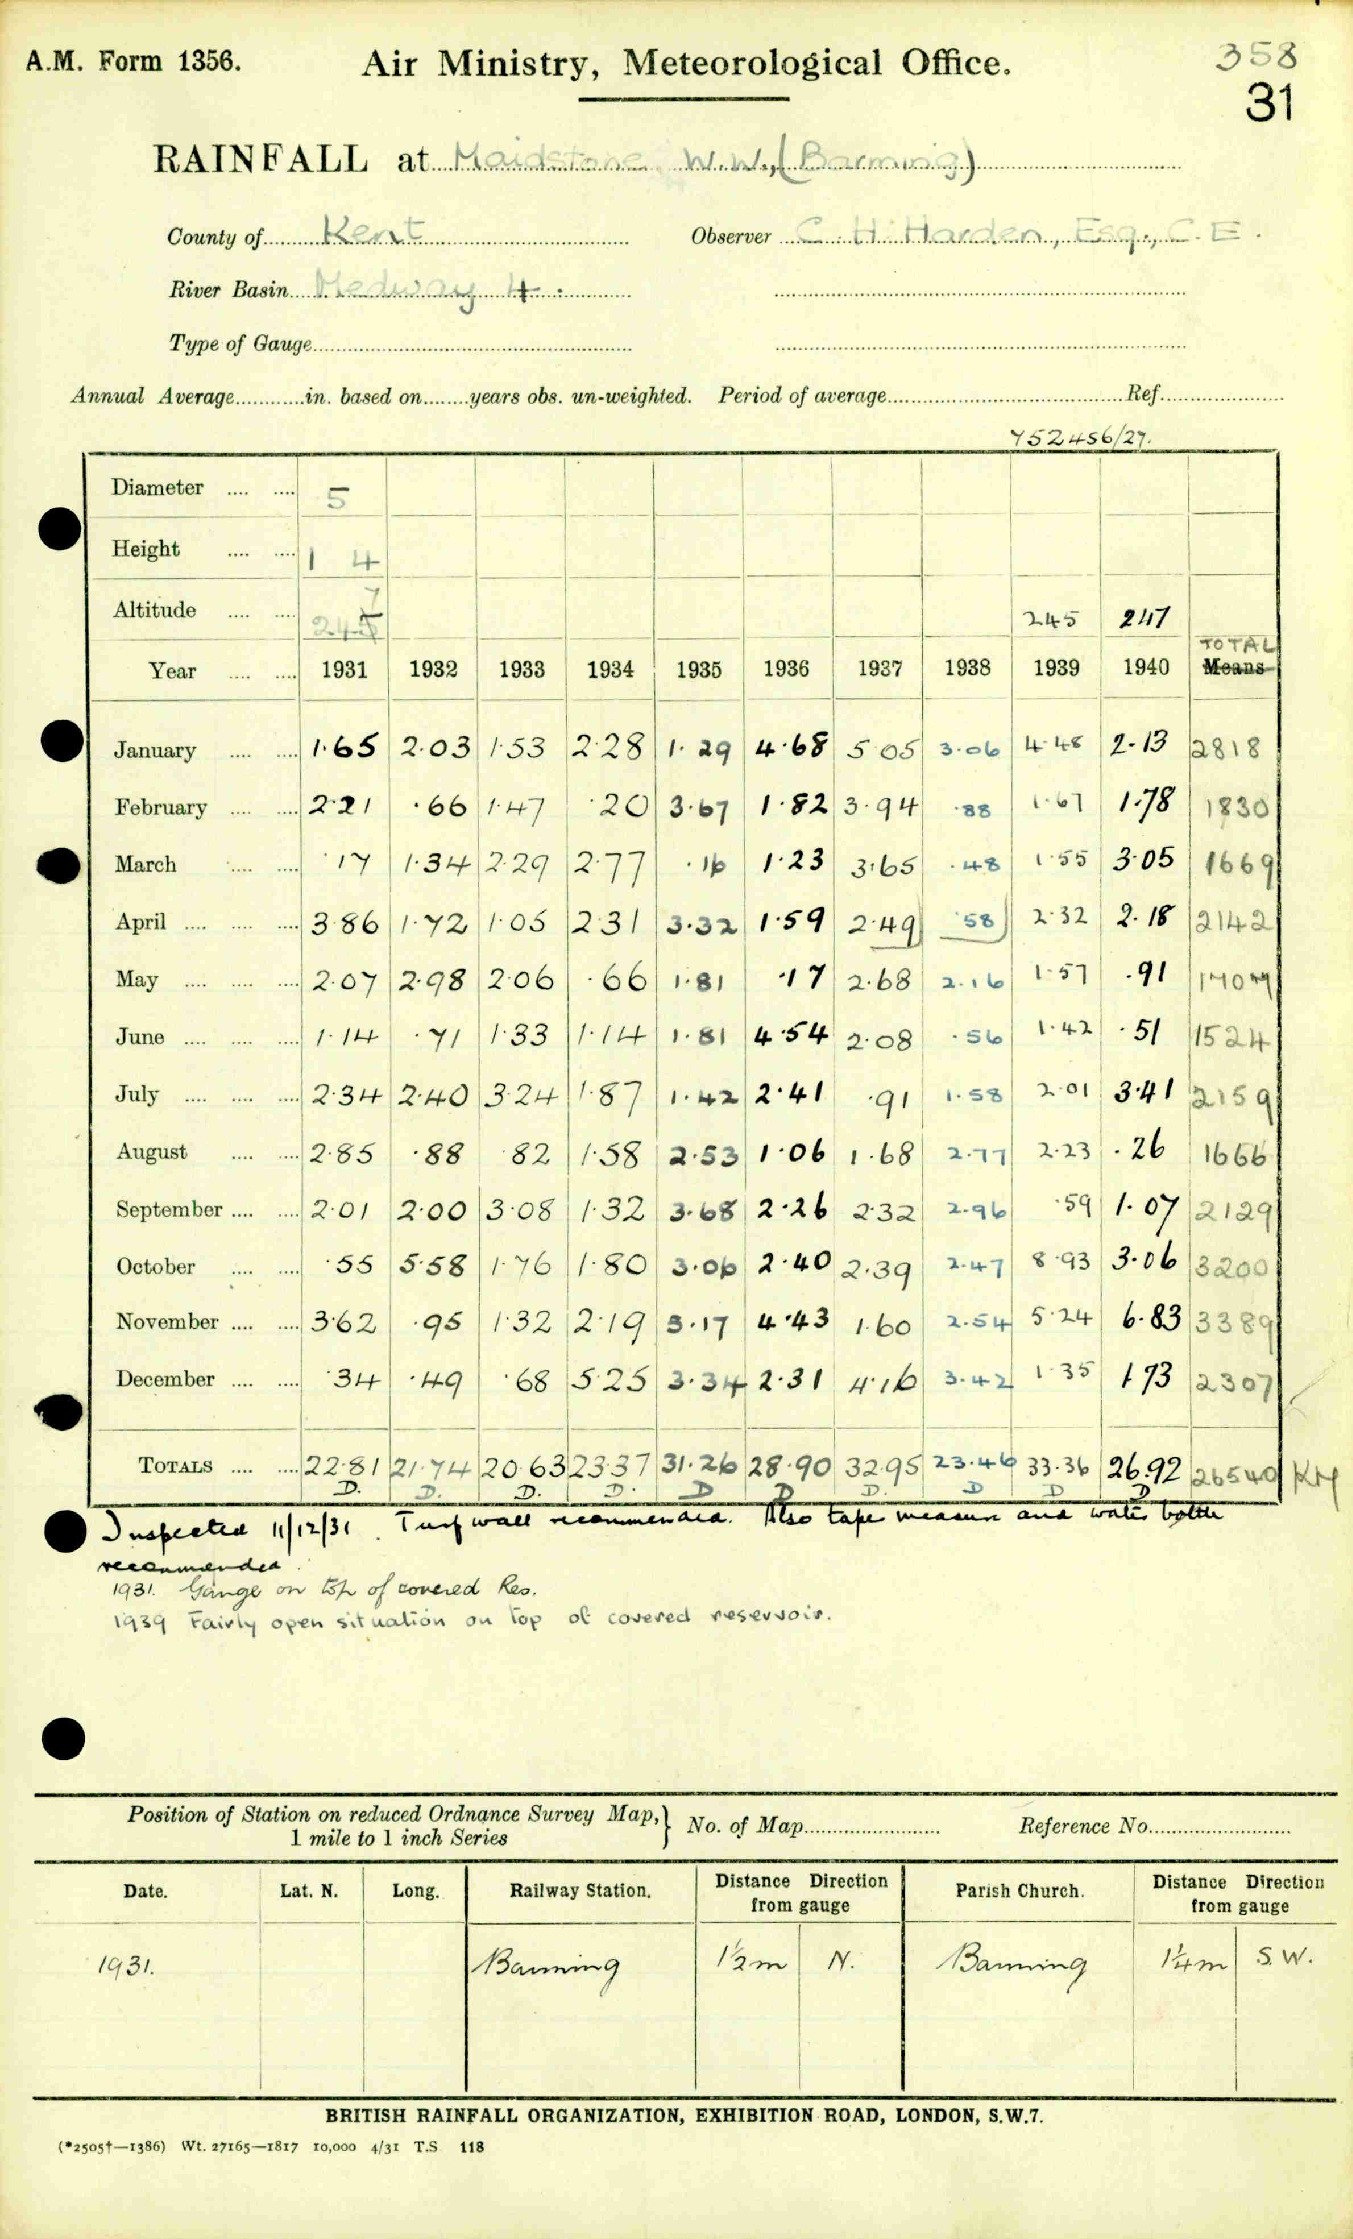 A.M. Form 1356.
Air Ministry, Meteorological Office.
358
31
RAINFALL at Maidstone W.W., (Barming)
County of Kent Observer C. H. Harden, Esq., C.E.
River Basin Medway 4.
Type of Gauge
Annual Average in. based on years obs. un-weighted. Period of average Ref.
752456/27.
Diameter 5
Height 1 4
Altitude 7 245 245 247
TOTAL
Year 1931 1932 1933 1934 1935 1936 1937 1938 1939 1940 Means
January 1.65 2.03 1.53 2.28 1.29 4.68 5.05 3.06 4.48 2.13 2818
February 2.21 .66 1.47 .20 3.67 1.82 3.94 .88 1.67 1.78 1830
March .17 1.34 2.29 2.77 .16 1.23 3.65 .48 1.55 3.05 1669
April 3.86 1.72 1.05 2.31 3.32 1.59 2.49 .58 2.32 2.18 2142
May 2.07 2.98 2.06 .66 1.81 .17 2.68 2.16 1.57 .91 1707
June 1.14 .71 1.33 1.14 1.81 4.54 2.08 .56 1.42 .51 1524
July 2.34 2.40 3.24 1.87 1.42 2.41 .91 1.58 2.01 3.41 2159
August 2.85 .88 .82 1.58 2.53 1.06 1.68 2.77 2.23 .26 1666
September 2.01 2.00 3.08 1.32 3.68 2.26 2.32 2.96 .59 1.07 2129
October .55 5.58 1.76 1.80 3.06 2.40 2.39 2.47 8.93 3.06 3200
November 3.62 .95 1.32 2.19 5.17 4.43 1.60 2.54 5.24 6.83 3389
December .34 .49 .68 5.25 3.34 2.31 4.16 3.42 1.35 1.73 2307
TOTALS 22.81 21.74 20.63 23.37 31.26 28.90 32.95 23.46 33.36 26.92 26540 KH
D. D. D. D. D D D. D D D
Inspected 11/12/31. Turf wall recommended. Also tape measure and water bottle
recommended.
1931. Gauge on top of covered Res.
1939 Fairly open situation on top of covered reservoir.
Position of Station on reduced Ordnance Survey Map, } No. of Map Reference No.
1 mile to 1 inch Series
Date. Lat. N. Long. Railway Station. Distance Direction from gauge Parish Church. Distance Direction from gauge
1931. Barming 1½m N. Barming 1¼m S.W.
BRITISH RAINFALL ORGANIZATION, EXHIBITION ROAD, LONDON, S.W.7.
(*2505†—1386) Wt. 27165—1817 10,000 4/31 T.S 118